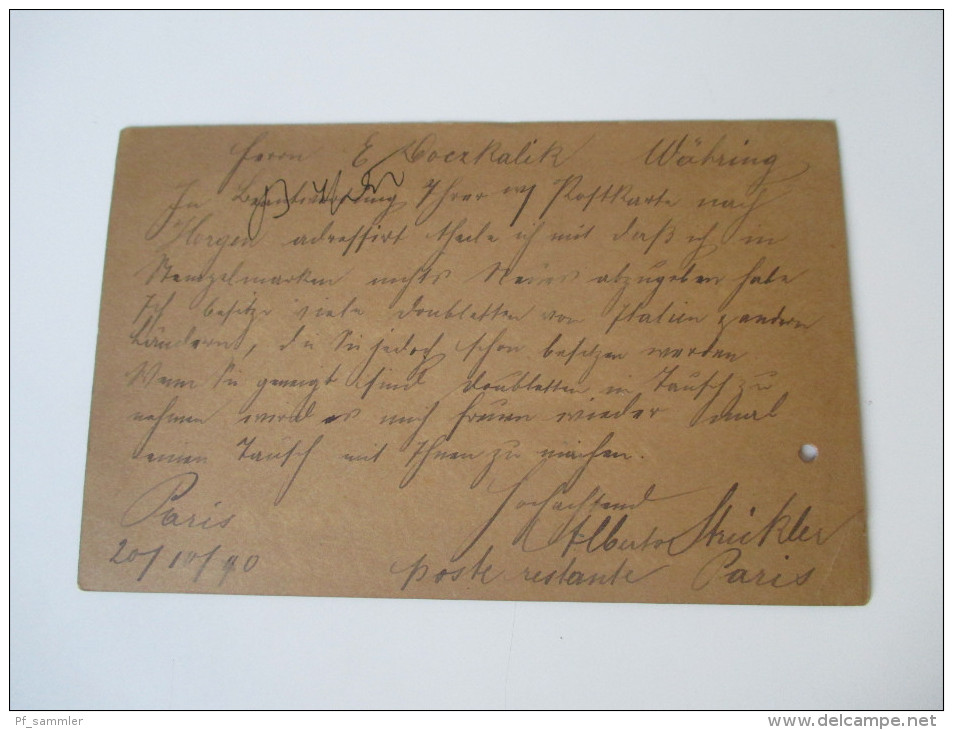 Herrn E Doczkalik Währing
In Beantwortung Ihrer w/ Postkarte nach
Horgen adressirt theile ich mit daß ich in
Stempelmarken nichts Neues abzugeben habe
Ich besitze viele Doubletten von Italien & andern
Ländern, die Sie jedoch schon besitzen werden
Wenn Sie geneigt sind Doubletten in Tausch zu
nehmen wird es mich freuen wieder 'mal
einen Tausch mit Ihnen zu machen.
Hochachtend
Paris Alberto Strickler
20/10/90 poste restante Paris
Pf_sammler www.delcampe.net